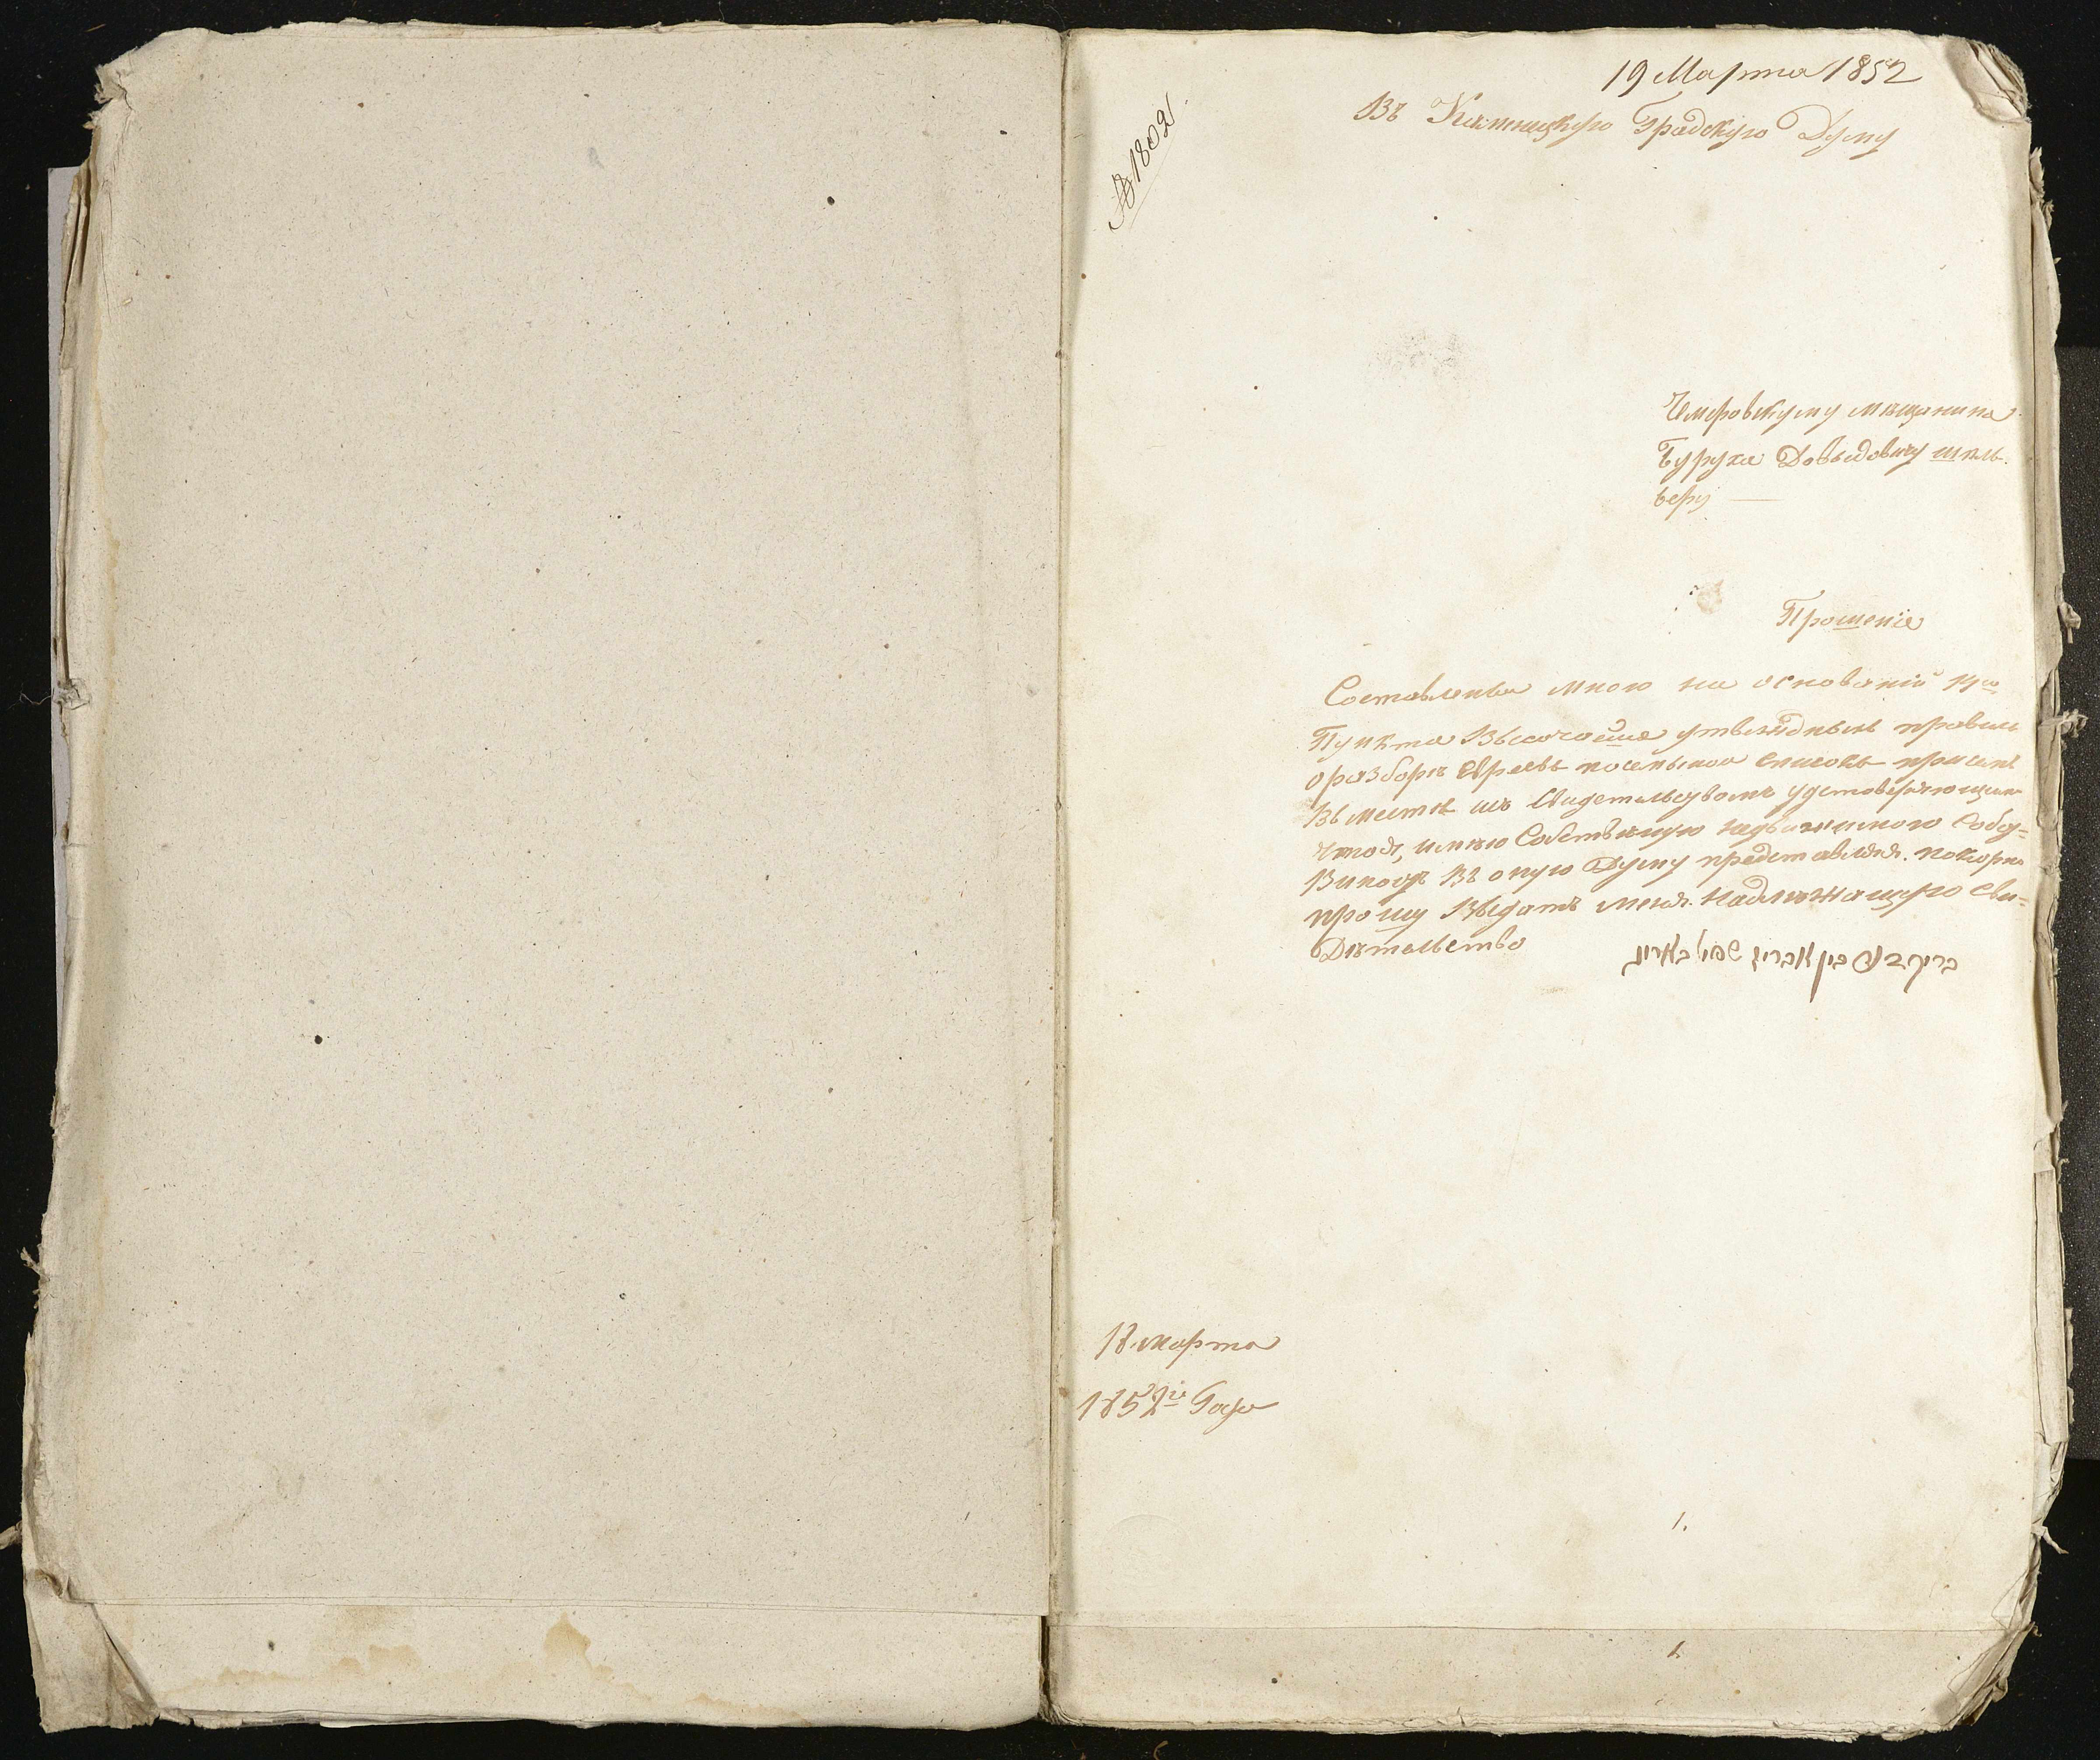 19 Марта 1852
№ 1802
Въ Каменецкую Градскую Думу
Чемеровскому мещанина
Буруха Довыдовичу шпиль-
беру —
Прошеніе
Составленъи мною на основаніи 17го
Пункта Высочайше утвежднънъ правилъ
о разборѣ Евреевъ посемъному списокъ при семъ
въ местѣ исъ Свидетельсувомъ удстоверяющимъ
что я, имѣю Собствѣную недвижимого Собст=
въ оную Думу представляя. покорно
прошу выдать меня. надлежащую Сви=
Дѣтельство
18 марта
1852го Года
1.
1.